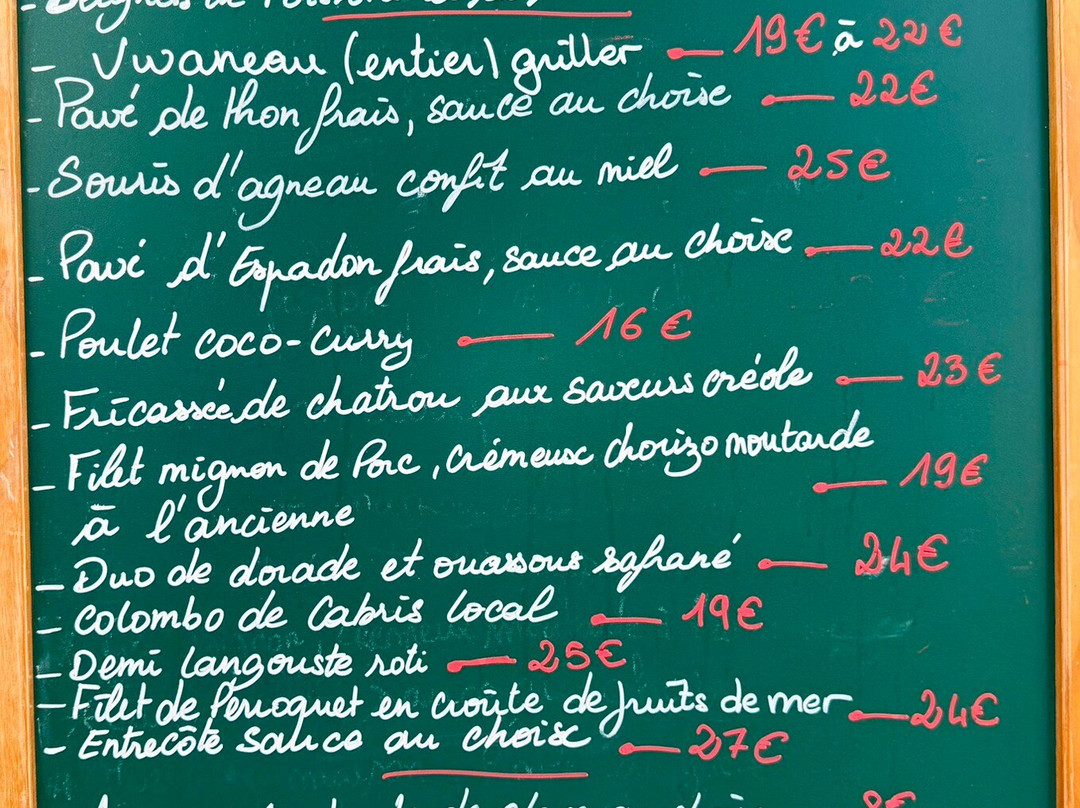 - Vivaneau (entier) griller 19€ à 22€
- Pavé de thon frais, sauce au choise 22€
- Souris d'agneau confit au miel 25€
- Pavé d'Espadon frais, sauce au choise 22€
- Poulet coco-curry 16€
- Fricassée de chatrou aux saveurs créole 23€
- Filet mignon de Porc, crémeuse chorizo moutarde
à l'ancienne 19€
- Duo de dorade et ouassous safrané 24€
- Colombo de Cabris local 19€
- Demi langouste roti 25€
- Filet de Perroquet en croûte de fruits de mer 24€
- Entrecôte sauce au choise 27€
8€